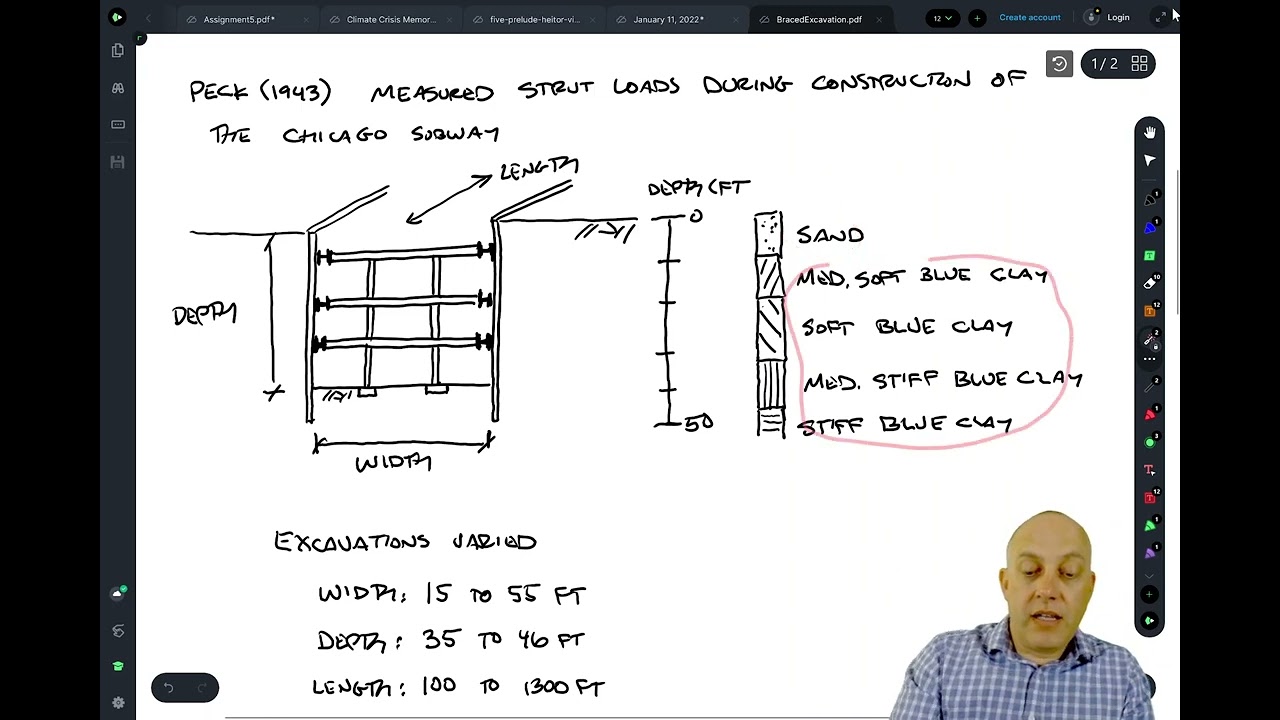 Assignment5.pdf*
Climate Crisis Memor...
five-prelude-heitor-vi...
January 11, 2022*
BracedExcavation.pdf
12
Create account
Login
1/2
PECK (1943) MEASURED STRUT LOADS DURING CONSTRUCTION OF
THE CHICAGO SUBWAY
LENGTH
DEPTH (FT
0
SAND
MED. SOFT BLUE CLAY
DEPTH
SOFT BLUE CLAY
MED. STIFF BLUE CLAY
50
STIFF BLUE CLAY
WIDTH
EXCAVATIONS VARIED
WIDTH: 15 TO 55 FT
DEPTH: 35 TO 46 FT
LENGTH: 100 TO 1300 FT